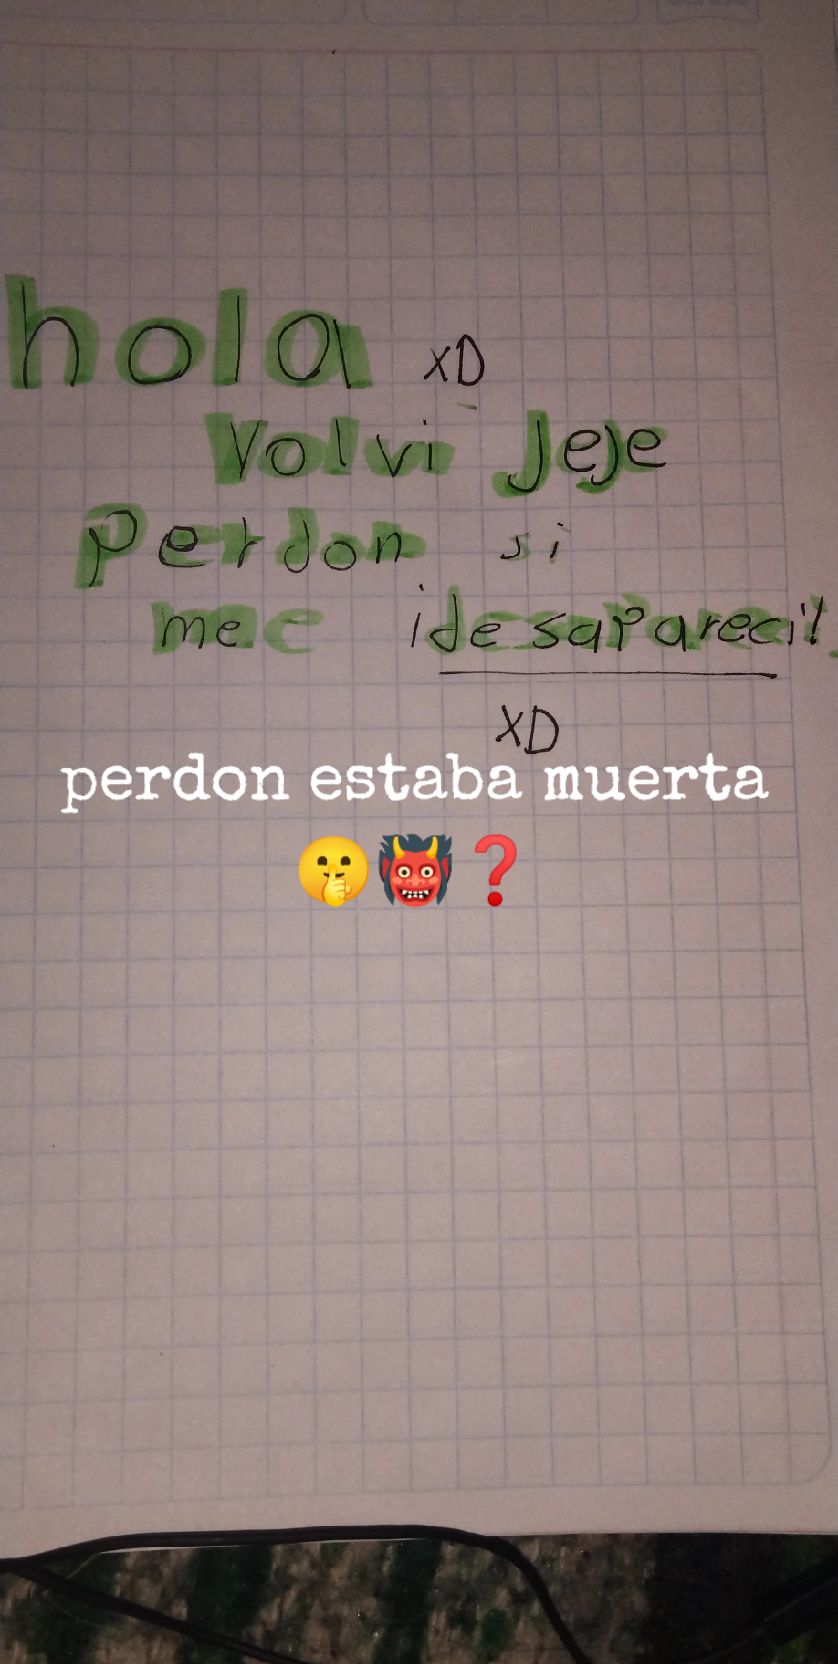 hola xD
Volvi Jeje
perdon si
me ¡desapareci!
xD
perdon estaba muerta
🤫👹❓